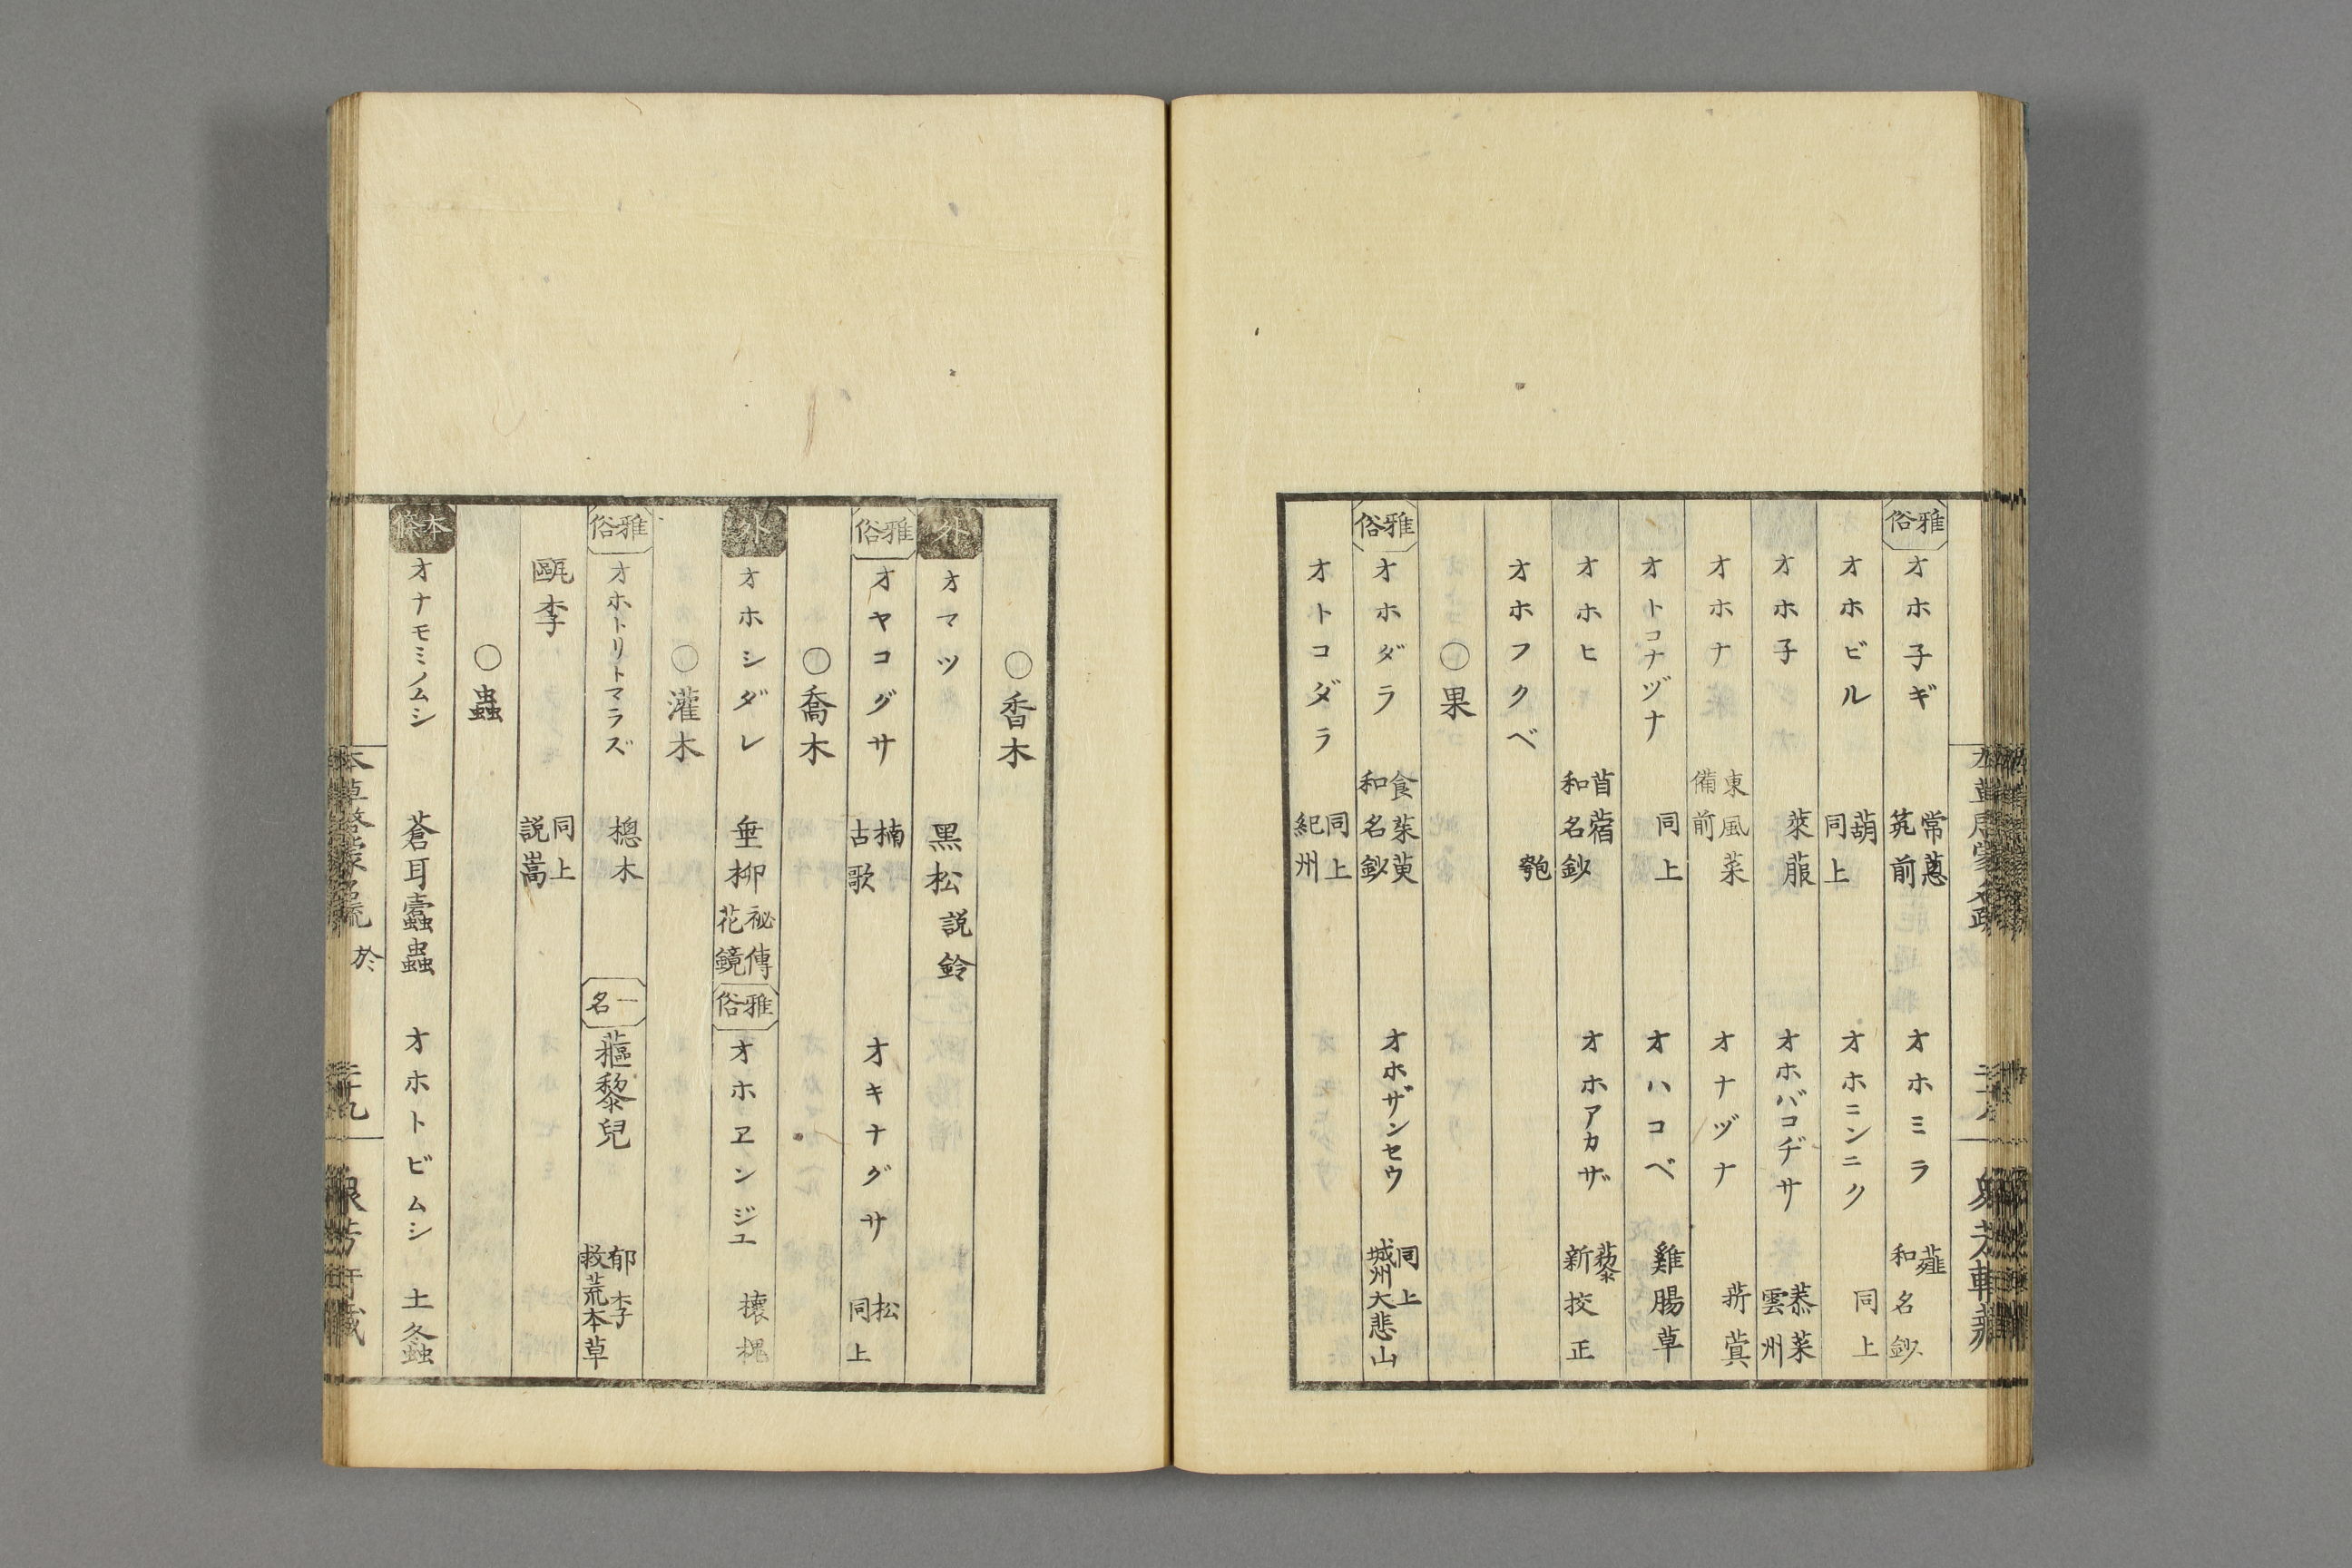 雅俗 オホ子ギ 常葱 筑前 オホミラ 薤 和名鈔
オホビル 葫 同上 オホニンニク 同上
オホ子 萊菔 オホバコヂサ 菾菜 雲州
オホナ 東風菜 備前 オナヅナ 菥蓂
オトコナヅナ 同上 オハコベ 雞腸草
オホヒ 苜蓿 和名鈔 オホアカザ 藜 新挍正
オホフクベ 匏
〇果
雅俗 オホダラ 食茱萸 和名鈔 オホザンセウ 同上 城州大悲山
オトコダラ 同上 紀州
〇香木
外 オマツ 黑松 説鈴
雅俗 オヤコグサ 楠 古歌 オキナグサ 松 同上
〇喬木
外 オホシダレ 垂柳 祕傳花鏡 雅俗 オホヱンジユ 櫰槐
〇灌木
雅俗 オホトリトマラズ 楤木 一名 蓲黎兒 郁李 救荒本草
甌李 同上 説嵩
〇蟲
本條 オナモミノムシ 蒼耳蠹蟲 オホトビムシ 土螽
本草啓蒙名疏 於 二十九